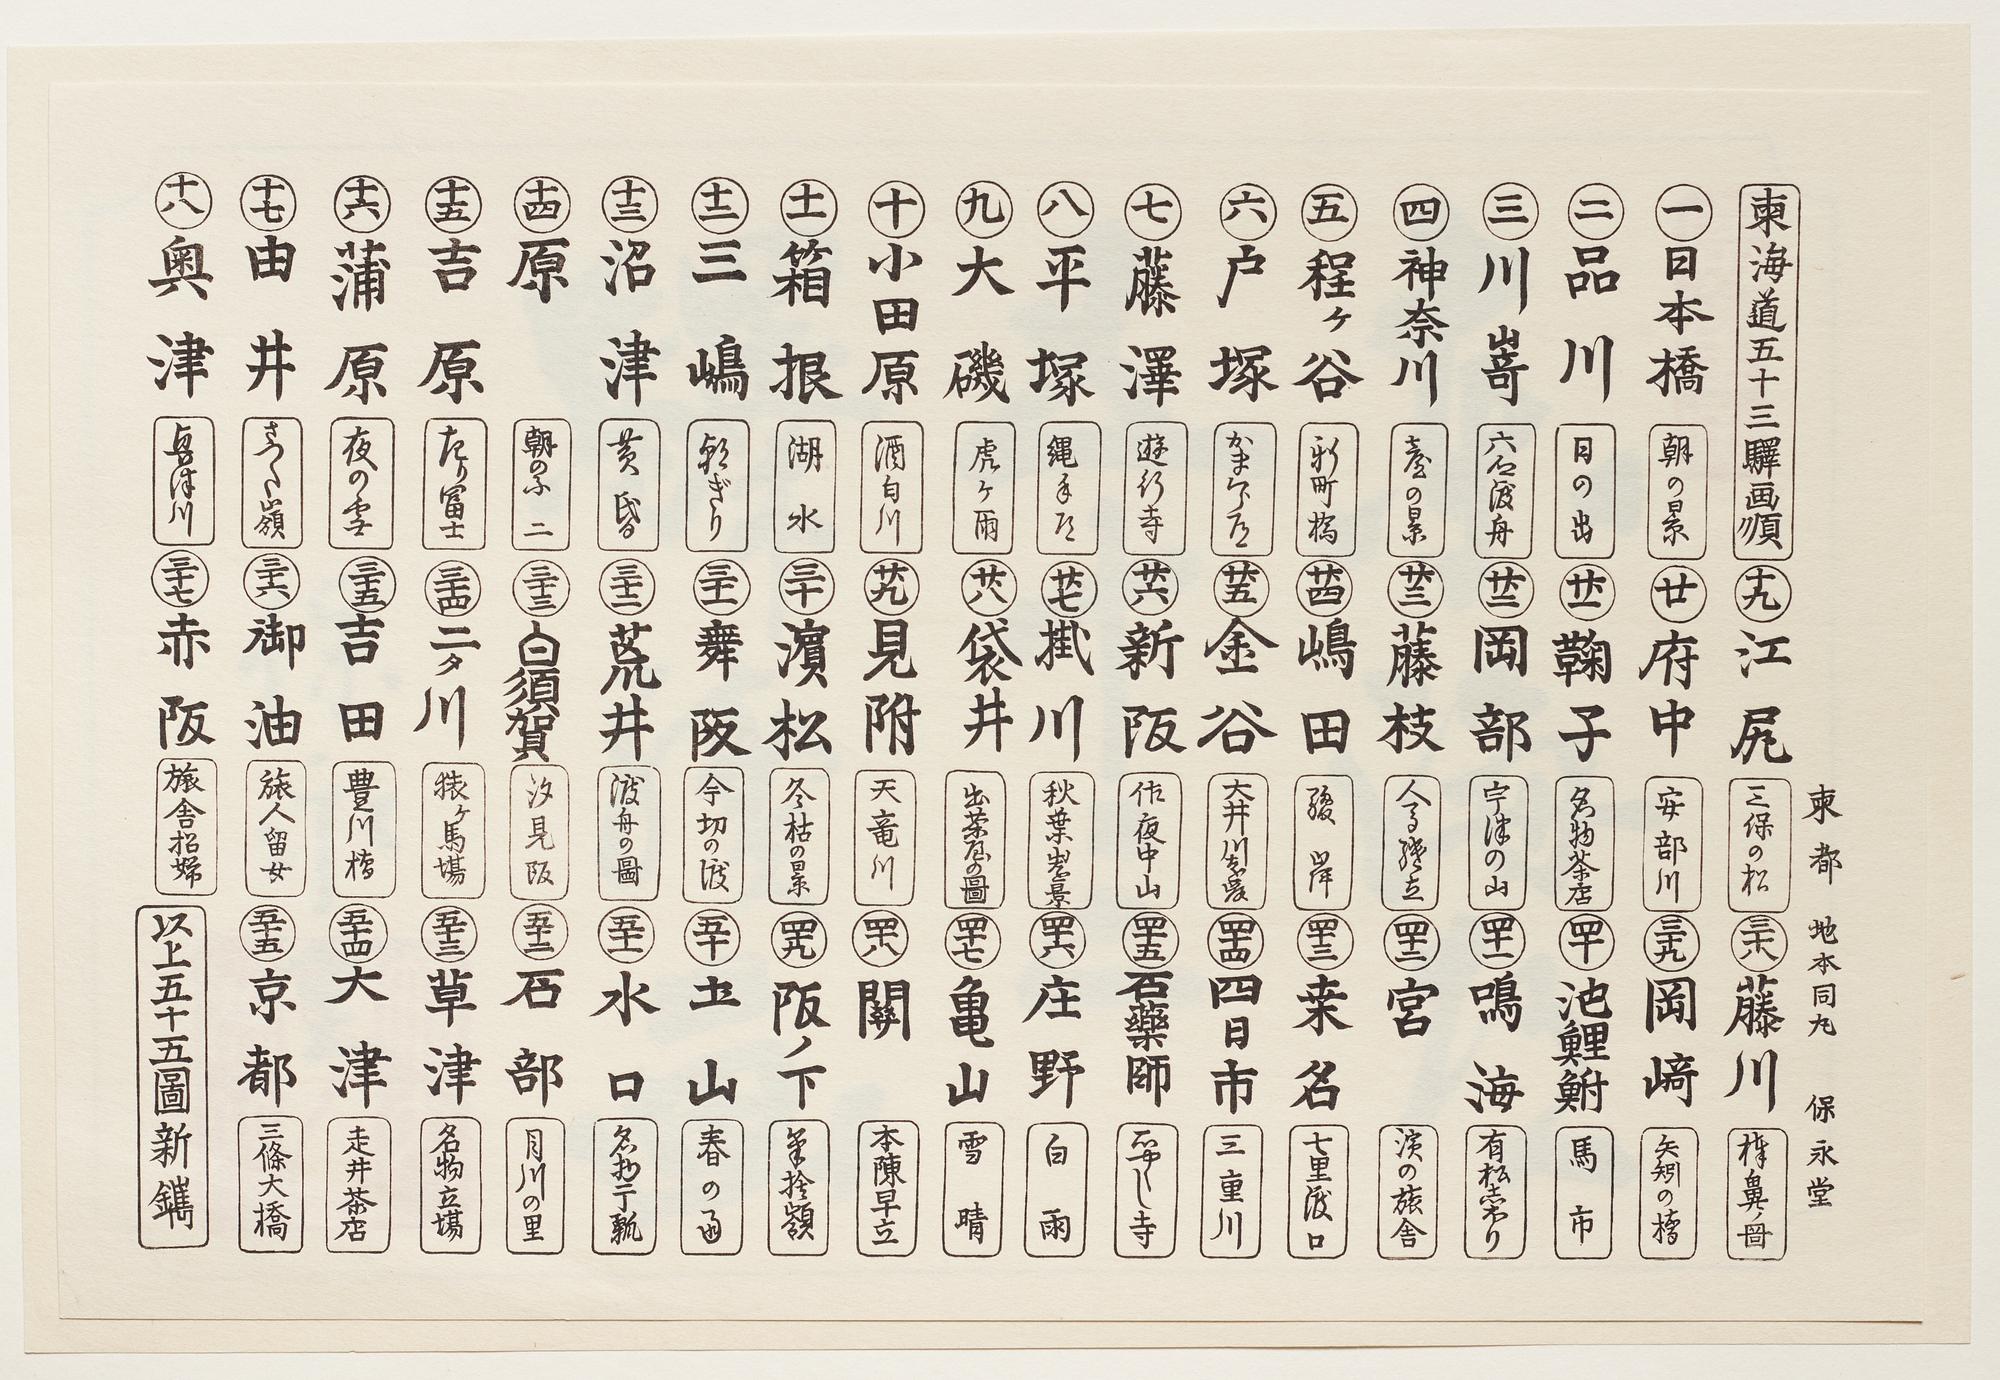 東海道五十三驛画順
一 日本橋 朝の景
二 品川 日の出
三 川嵜 六合渡舟
四 神奈川 臺の景
五 程ヶ谷 新町橋
六 戸塚
七 藤澤 遊行寺
八 平塚 縄手道
九 大磯 虎ヶ雨
十 小田原 酒匂川
十一 箱根 湖水
十二 三嶋 朝ぎり
十三 沼津 黄昏
十四 原 朝のふ二
十五 吉原 左り冨士
十六 蒲原 夜の雪
十七 由井 さつた嶺
十八 奥津 興津川
十九 江尻 三保の松
廿 府中 安部川
廿一 鞠子 名物茶店
廿二 岡部 宇津の山
廿三 藤枝 人馬継立
廿四 嶋田 駿岸
廿五 金谷 大井川遠岸
廿六 新阪 佐夜中山
廿七 掛川 秋葉山遠景
廿八 袋井 出茶屋の圖
廿九 見附 天竜川
三十 濱松 冬枯の景
三十一 舞阪 今切の渡
三十二 荒井 渡舟の圖
三十三 白須賀 汐見阪
三十四 二タ川 猿ヶ馬場
三十五 吉田 豊川橋
三十六 御油 旅人留女
三十七 赤阪 旅舎招婦
三十八 藤川 棒鼻ノ圖
三十九 岡崎 矢矧の橋
四十 池鯉鮒 馬市
四十一 鳴海 有松志ぼり
四十二 宮 濱の旅舎
四十三 桒名 七里渡口
四十四 四日市 三重川
四十五 石藥師 石やくし寺
四十六 庄野 白雨
四十七 亀山 雪晴
四十八 関 本陳早立
四十九 阪ノ下 筆捨嶺
五十 土山 春の雨
五十一 水口 名物干瓢
五十二 石部 目川の里
五十三 草津 名物立場
五十四 大津 走井茶店
五十五 京都 三條大橋
以上五十五圖新鐫
東都 地本同丸 保永堂